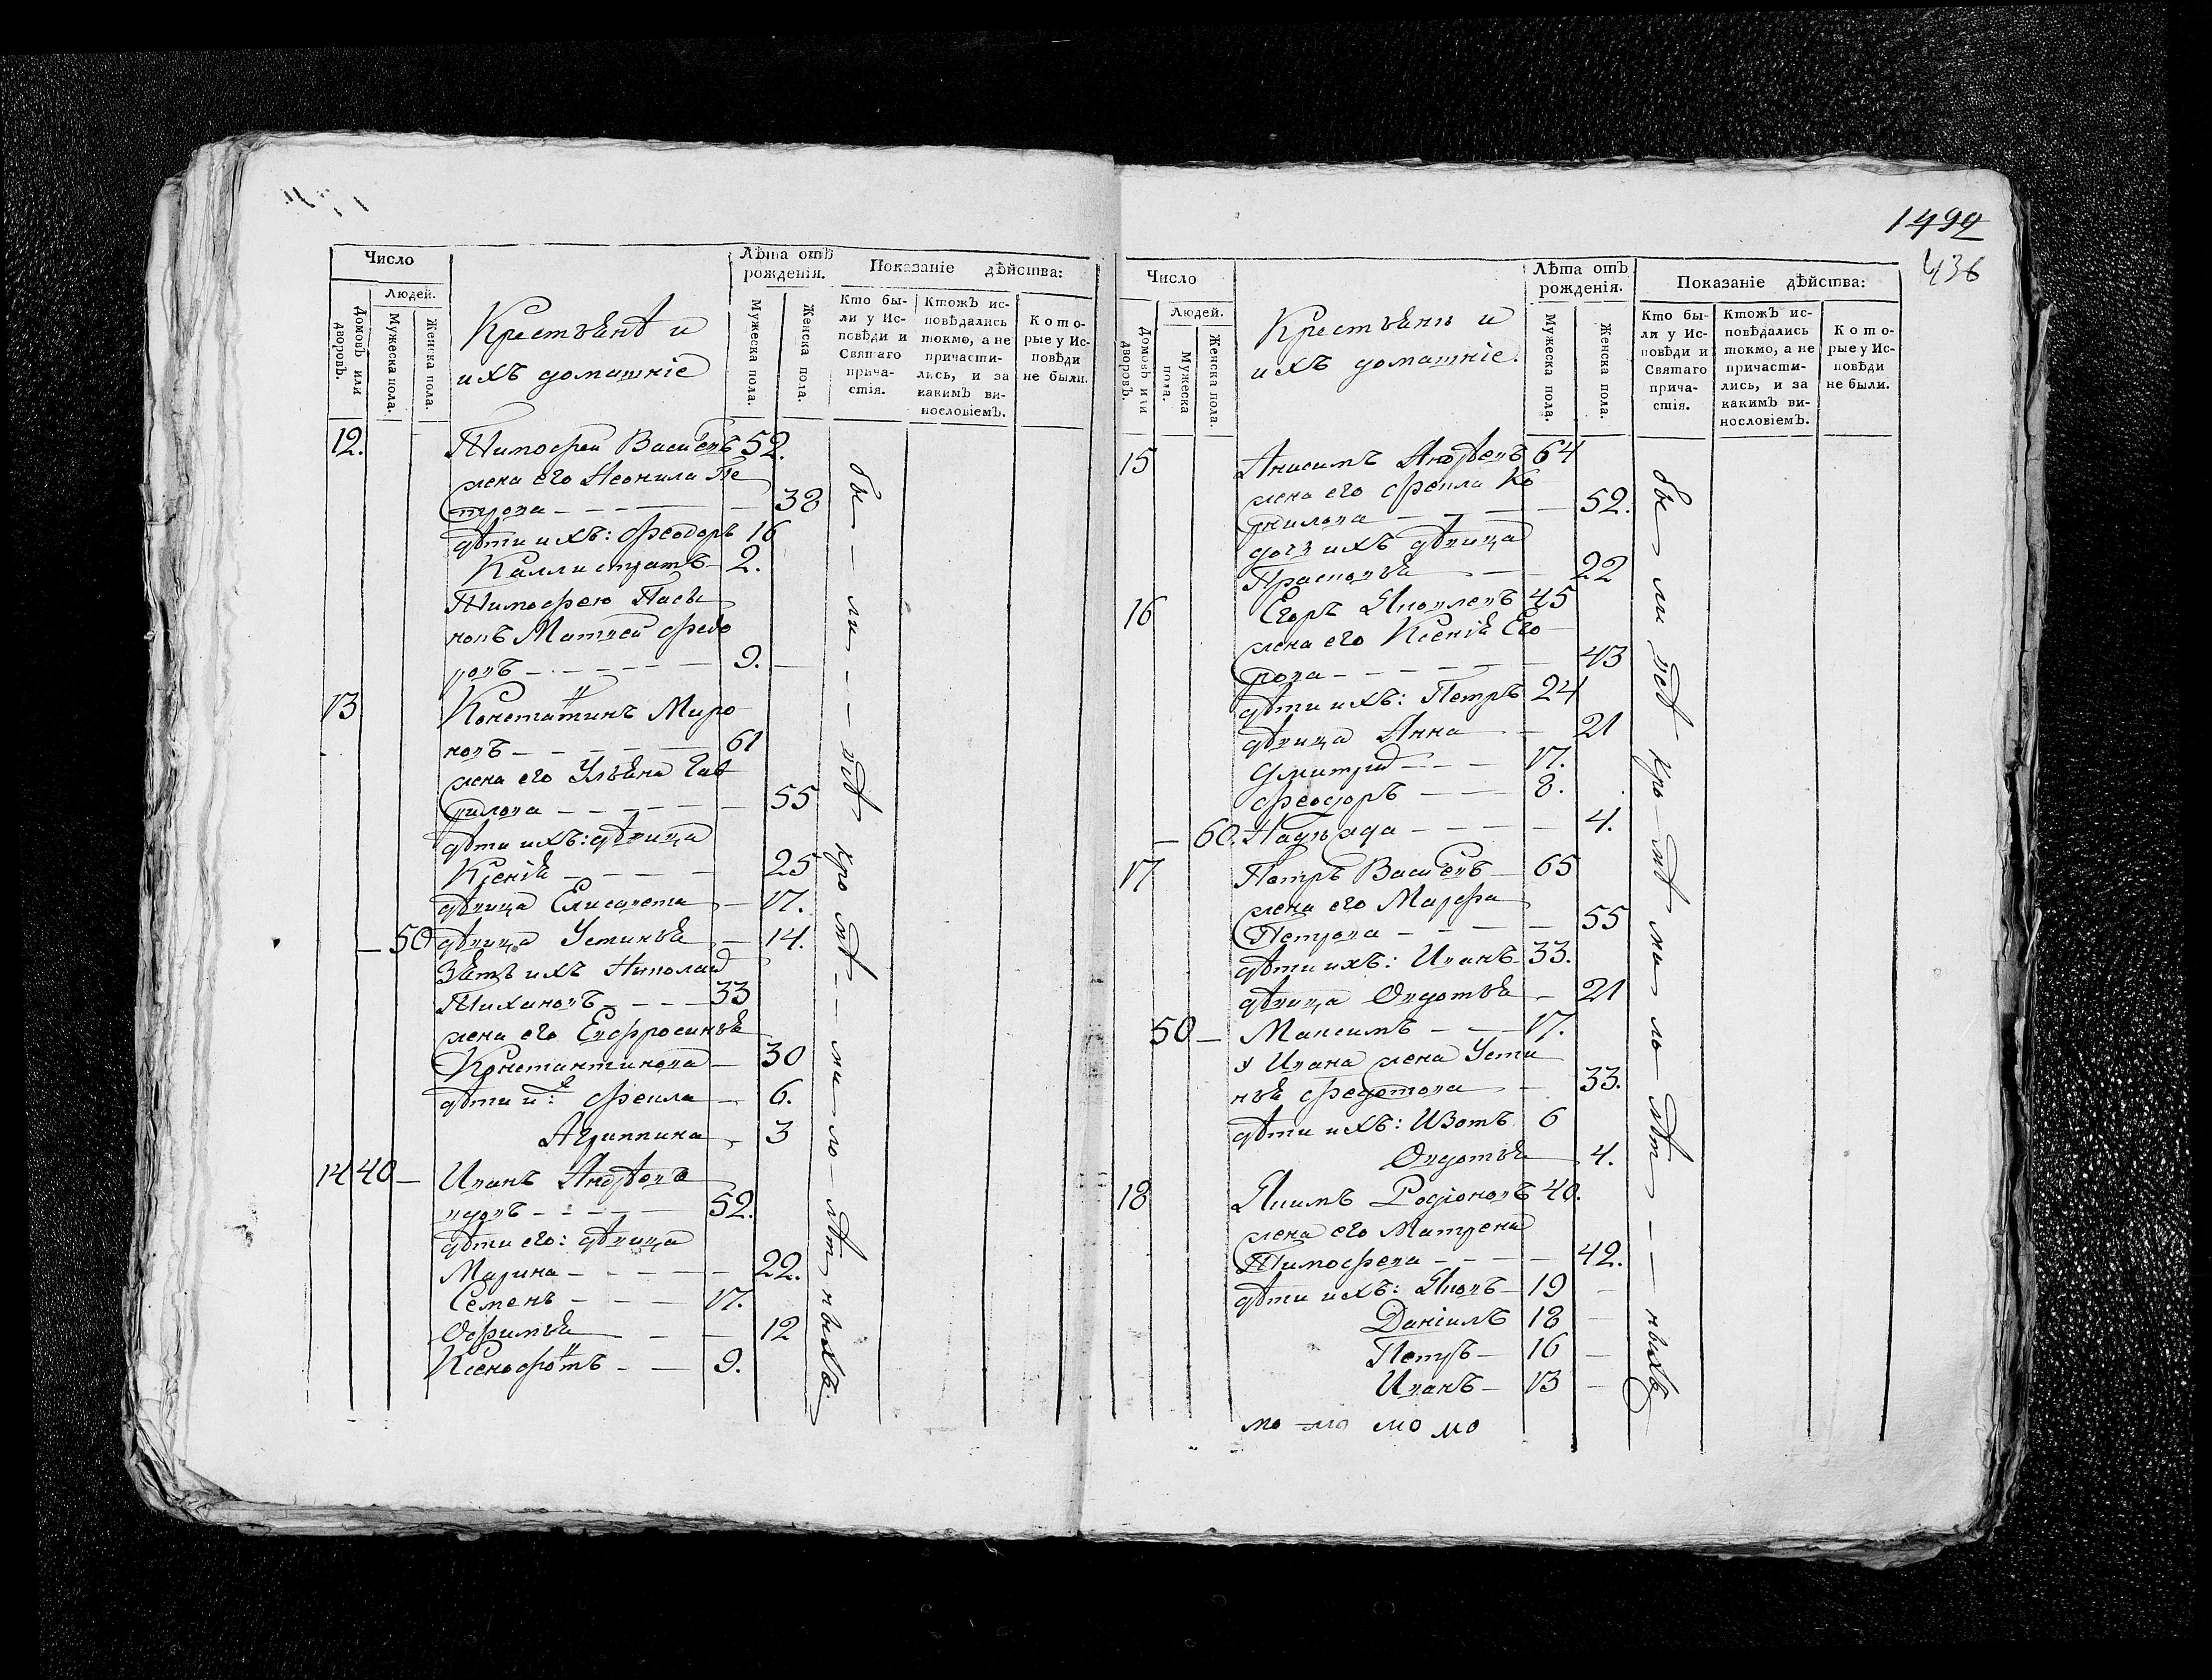 Число
Людей.
Домовъ или дворовъ.
Мужеска пола.
Женска пола.
Крестьянѣ и
ихъ домашніе
Лѣта отъ
рожденія.
Мужеска пола.
Женска пола.
Показаніе дѣйства:
Кто бы-
ли у Ис-
повѣди и
Святаго
прича-
стія.
Ктожъ ис-
повѣдались
токмо, а не
причасти-
лись, и за
какимъ ви-
нословіемъ.
Кото-
рые у Ис-
повѣди
не были.
12. Тимофей Васильевъ 52.
жена его Неонила Пе
трова - - - - 38
дѣти ихъ: Феодоръ 16
Каллистратъ - 2.
Тимофею Пасы
нокъ Матвей Федо
ровъ - - - - 9.
13 Констатинъ Миро
новъ - - - - 61
жена его Ульяна Гав
рилова - - - - 55
дѣти ихъ: дѣвица
Ксенія - - - - 25
дѣвица Елисавета - 17.
- 50 дѣвица Устинья - 14.
Зять ихъ Николай
Тихановъ - - - 33
жена его Евфросинья
Константинова - 30
дѣти их: Фекла - 6.
Агриппина - 3
14 40 - Иванъ Андреевъ
вдовъ - - - - 52.
дѣти его: дѣвица
Марина - - - - 22.
Семенъ - - - 17.
Офимья - - - 12
Ксенофотъ - - 9.
бы - ли - - всѣ кро мѣ - - ма - ло - лѣт ныхъ
1492
436
Число
Людей.
Домовъ или дворовъ.
Мужеска пола.
Женска пола.
Крестьяни и
ихъ домашніе.
Лѣта отъ
рожденія.
Мужеска пола.
Женска пола.
Показаніе дѣйства:
Кто бы-
ли у Ис-
повѣди и
Святаго
прича-
стія.
Ктожъ ис-
повѣдались
токмо, а не
причасти-
лись, и за
какимъ ви-
нословіемъ.
Кото-
рые у Ис-
повѣди
не были.
15 Анисимъ Андреевъ 64
жена его Фекла Ко
рнилова - - - 52.
дочь ихъ дѣвица
Прасковья - - 22
16 Егоръ Яковлевъ 45
жена его Ксенія Его
рова - - - - 43
дѣти ихъ: Петръ 24
дѣвица Анна - 21
Дмитрій - - - 17.
Феодоръ - - - 8.
- 60. Надѣжда - - - - 4.
17 Петръ Васильевъ - 65
жена его Марфа
Петрова - - - - 55
дѣти ихъ: Иванъ - 33.
дѣвица Овдотья - 21
50 - Максимъ - - - 17.
у Ивана жена Усти
нья Федотова - 33.
дѣти ихъ: Изотъ 6
Овдотья - 4.
18 Якимъ Родіоновъ 40.
жена его Матрена
Тимофева - - - - 42.
дѣти ихъ: Яковъ - 19
Даніилъ 18
Петръ - 16
Иванъ - 13
мо мо мо мо
бы ли всѣ кро - мѣ ма ло - лѣт - - ныхъ